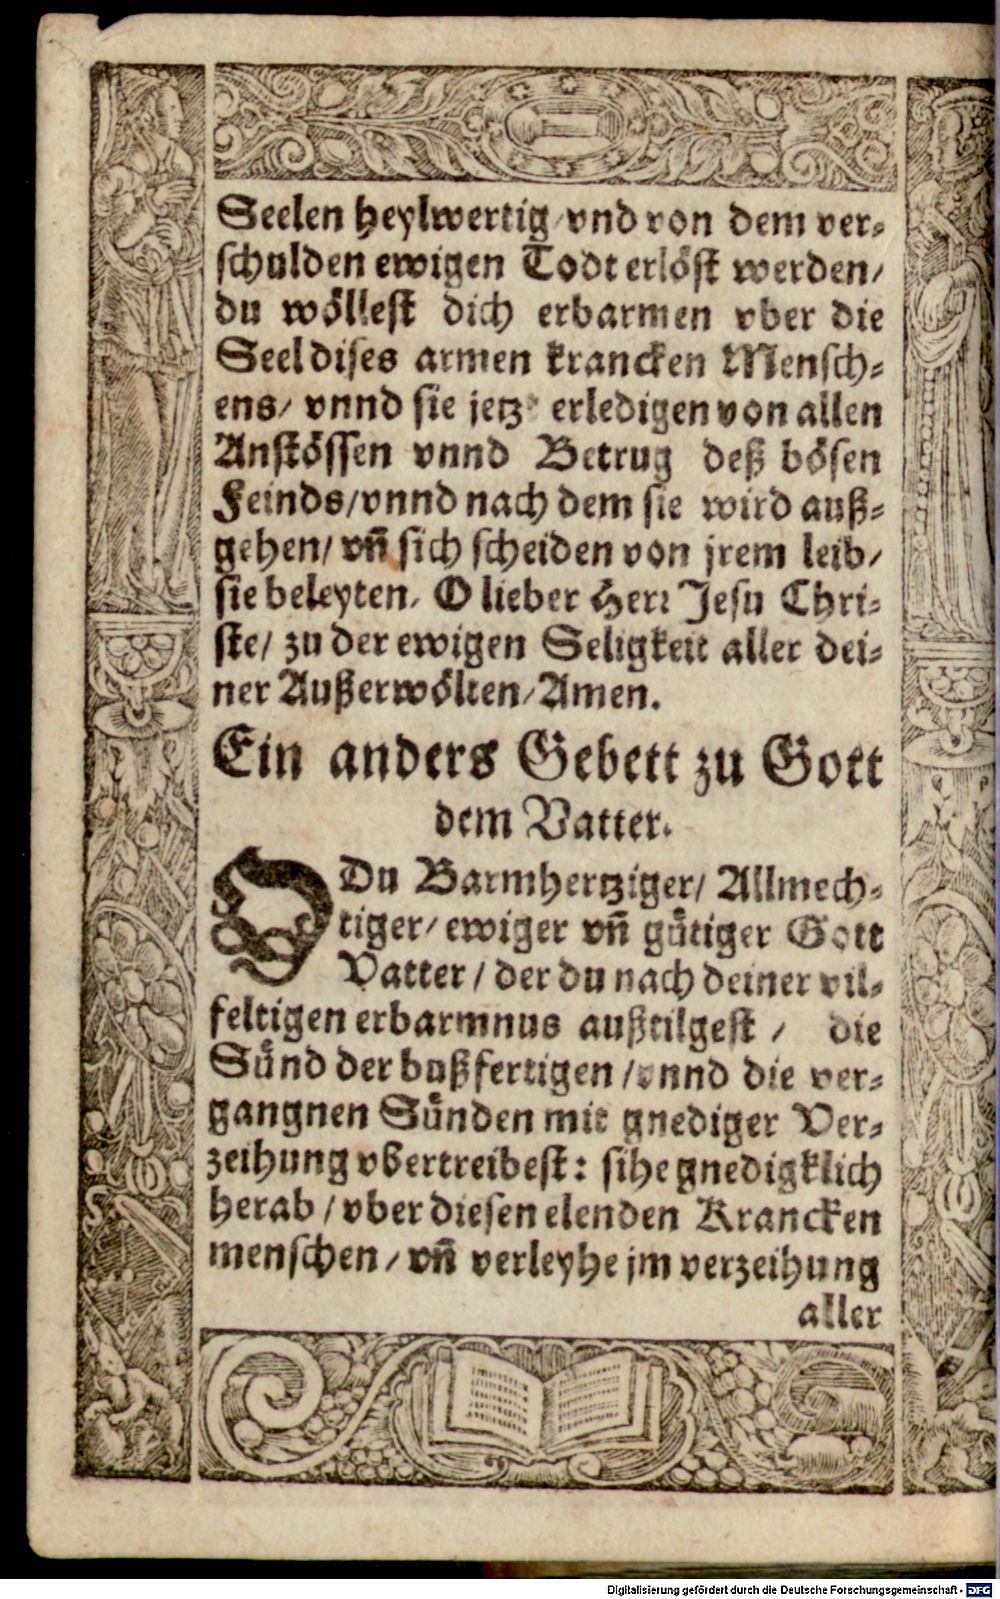 Seelen heylwertig/vnd von dem ver-
schulden ewigen Todt erlöst werden/
du wöllest dich erbarmen vber die
Seel dises armen krancken Mensch-
ens/ vnnd sie jetzt erledigen von allen
Anstössen vnnd Betrug deß bösen
Feinds/vnnd nach dem sie wird auß-
gehen/ vñ sich scheiden von jrem leib/
sie beleyten, O lieber Herr Jesu Chri-
ste/ zu der ewigen Seligkeit aller dei-
ner Außerwölten/Amen.
Ein anders Gebett zu Gott
dem Vatter.
O Du Barmhertziger/ Allmech-
tiger/ ewiger vñ gůtiger Gott
Vatter/ der du nach deiner vil-
feltigen erbarmnus außtilgest/ die
Sůnd der bußfertigen/vnnd die ver-
gangnen Sůnden mit gnediger Ver-
zeihung vbertreibest: sihe gnedigklich
herab/ vber diesen elenden Krancken
menschen/ vñ verleyhe jm verzeihung
aller
Digitalisierung gefördert durch die Deutsche Forschungsgemeinschaft - DFG